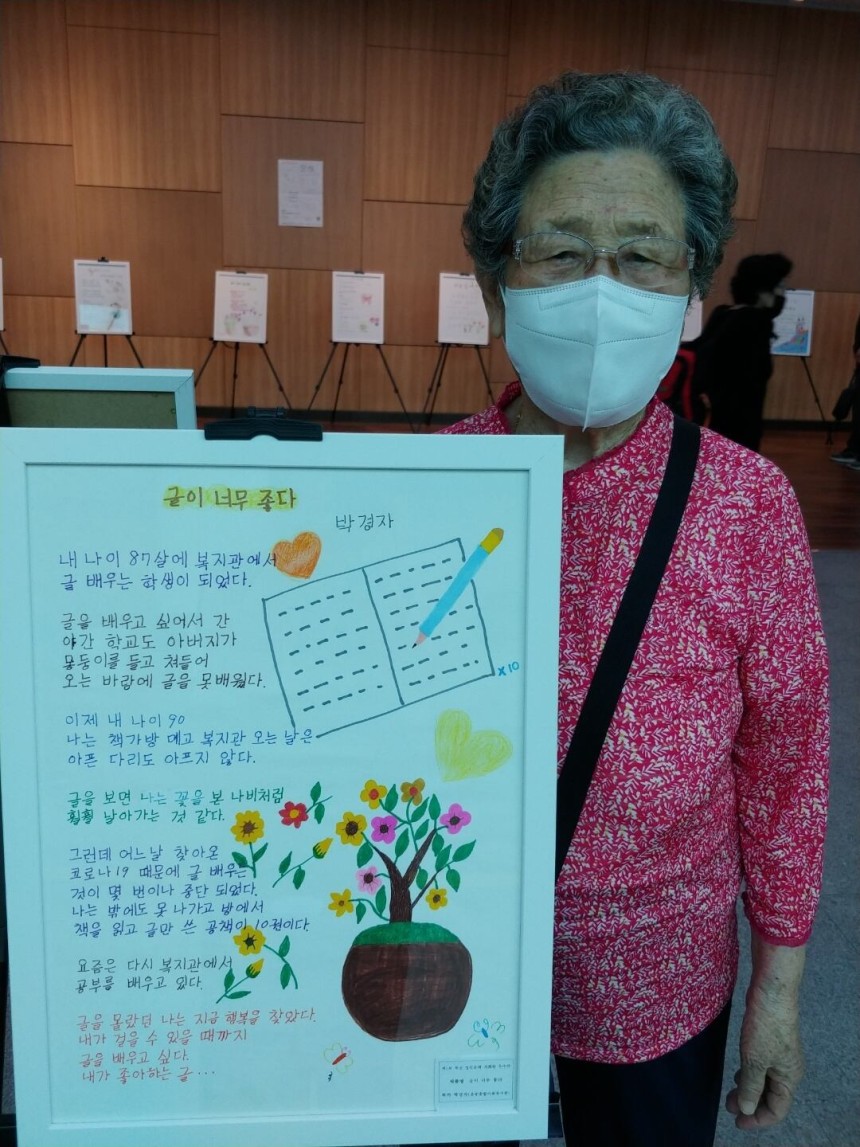 글이 너무 좋다
박경자
내 나이 87살에 복지관에서
글 배우는 학생이 되었다.
글을 배우고 싶어서 간
야간 학교도 아버지가
몽둥이를 들고 쳐들어
오는 바람에 글을 못배웠다.
이제 내 나이 90
나는 책가방 메고 복지관 오는 날은
아픈 다리도 아프지 않다.
글을 보면 나는 꽃을 본 나비처럼
훨훨 날아가는 것 같다.
그런데 어느날 찾아온
코로나19 때문에 글 배우는
것이 몇 번이나 중단 되었다.
나는 밖에도 못 나가고 방에서
책을 읽고 글만 쓴 공책이 10권이다.
x10
요즘은 다시 복지관에서
공부를 배우고 있다.
글을 몰랐던 나는 지금 행복을 찾았다.
내가 걸을 수 있을 때까지
글을 배우고 싶다.
내가 좋아하는 글...